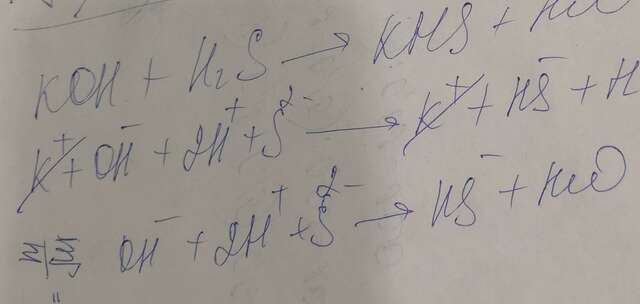 KOH + H₂S → KHS + H₂O
K⁺ + OH⁻ + 2H⁺ + S²⁻ → K⁺ + HS⁻ + H
OH⁻ + 2H⁺ + S²⁻ → HS⁻ + H₂O